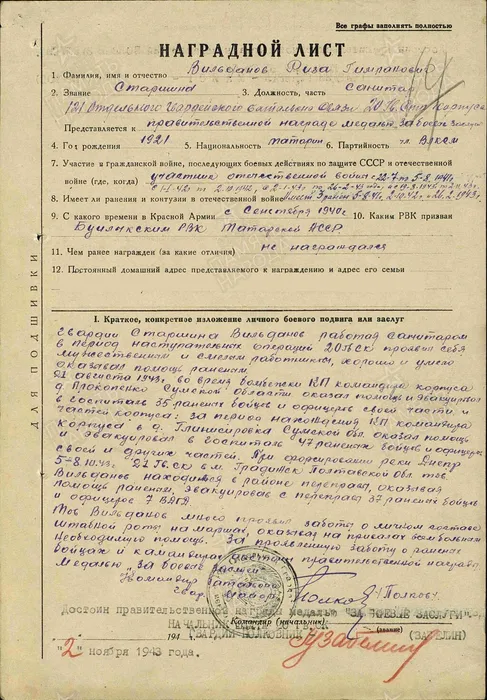 Все графы заполнять полностью
НАГРАДНОЙ ЛИСТ
1. Фамилия, имя и отчество Вильданов Риза
2. Звание Старшина 3. Должность, часть Санитар
121 Отдельного Гвардейского батальона связи 20 Гв. стр. корпуса
Представляется к правительственной награде медаль "За боевые заслуги"
4. Год рождения 1921 5. Национальность татарин 6. Партийность чл. ВЛКСМ
7. Участие в гражданской войне, последующих боевых действиях по защите СССР и отечественной
войне (где, когда) участник отечественной войны с 22-7 по 5-8-1941г.
8. Имеет ли ранения и контузии в отечественной войне
9. С какого времени в Красной Армии с Сентября 1940г. 10. Каким РВК призван
РВК Татарской АССР.
11. Чем ранее награжден (за какие отличия) не награждался
12. Постоянный домашний адрес представляемого к награждению и адрес его семьи
ДЛЯ ПОДШИВКИ
I. Краткое, конкретное изложение личного боевого подвига или заслуг
Гвардии Старшина Вильданов работая санитаром
в период наступательных операций 20 ГвСК проявил себя
мужественным и смелым работником, хорошо и умело
оказывал помощь раненым.
21 августа 1943г. во время бомбежки КП командира корпуса
д. Прокопенко Сумской области оказал помощь и эвакуировал
в госпиталь 35 раненых бойцов и офицеров своей части и
частей корпуса; за период нахождения КП командира
корпуса в д. Сумской обл. оказал помощь
и эвакуировал в госпиталь 47 раненых бойцов и офицеров
своей и других частей. При форсировании реки Днепр
5-8.10.43г. 21 Гв. СК в м. Градижск Полтавской обл. тов.
Вильданов находился в районе переправ, оказывая
помощь раненым, эвакуировав с переправ 37 раненых бойцов
и офицеров
Тов Вильданов много проявил заботы о личном составе
штабной роты на маршах, оказывая на привалах больным
необходимую помощь. За проявленную заботу о раненых
бойцах и командирах достоин правительственной награды
Медалью "За боевые заслуги"
Командир батальона
Гвар. майор
Достоин правительственной награды медалью "ЗА БОЕВЫЕ ЗАСЛУГИ".
Командир (начальник)
НАЧАЛЬНИК
(звание)
194
ГВАРДИИ ПОЛКОВНИК
(ЗАБЕЛИН)
"2" ноября 1943 года.